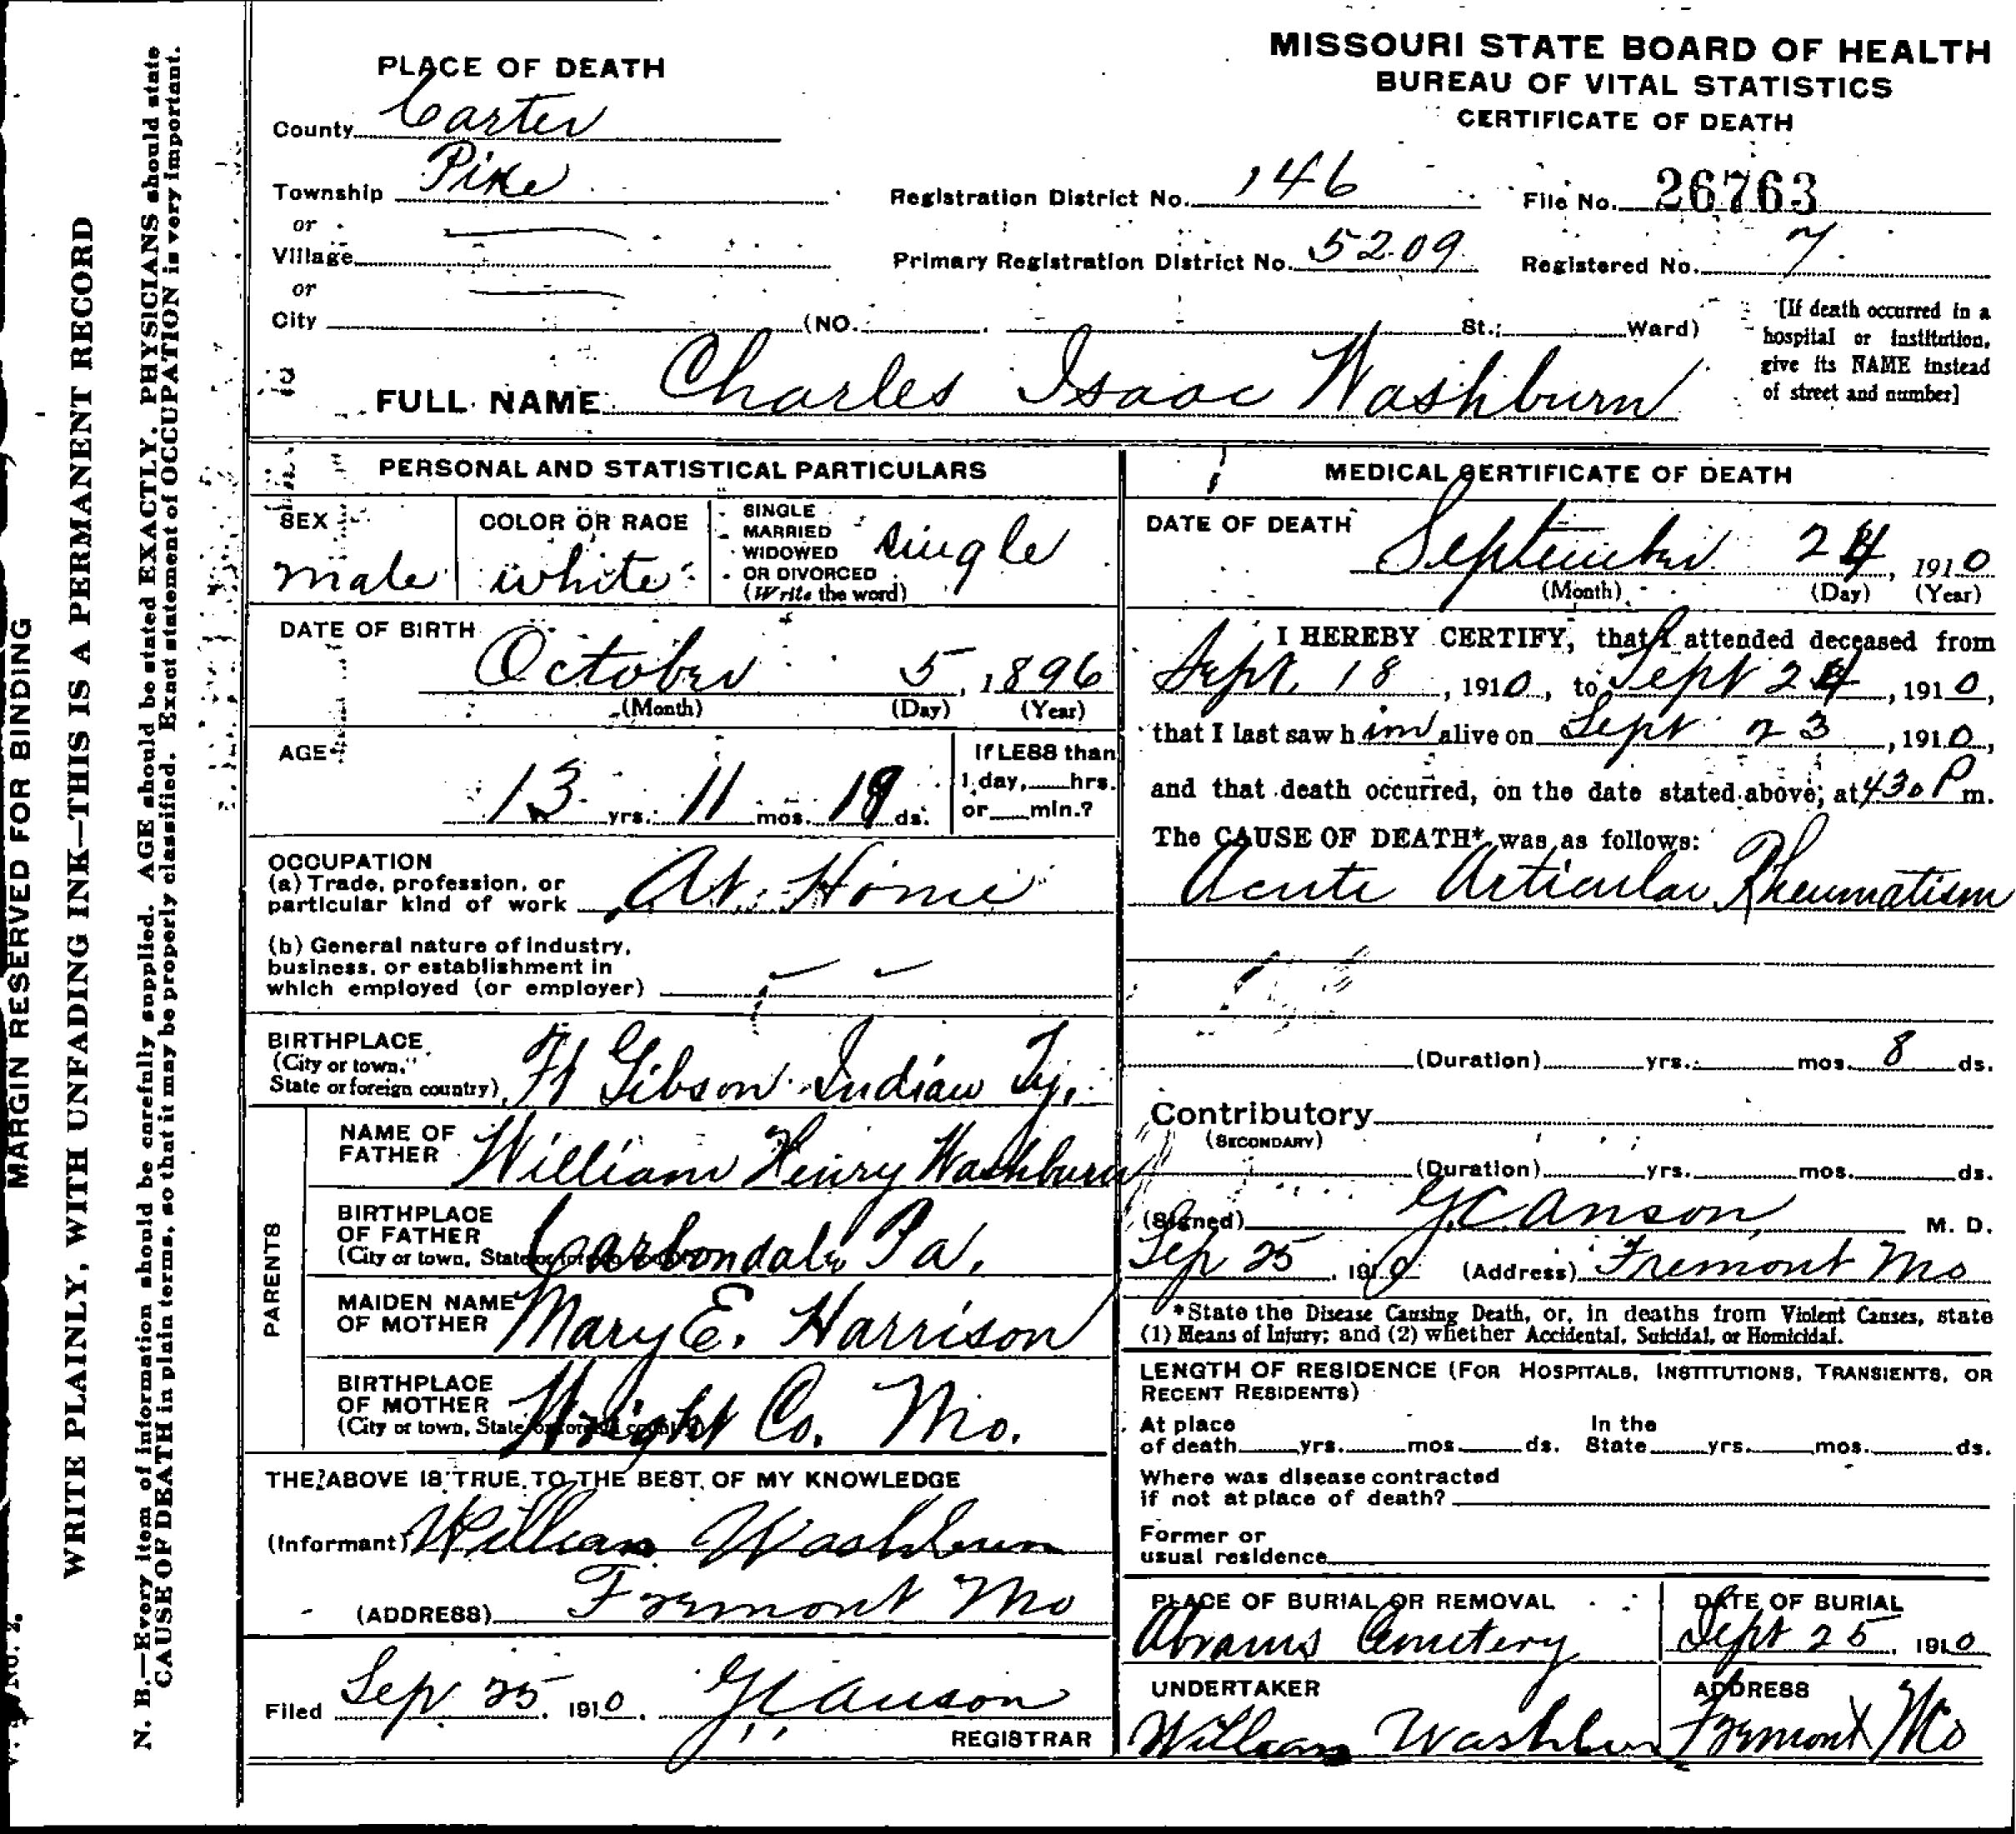 MARGIN RESERVED FOR BINDING
WRITE PLAINLY, WITH UNFADING INK—THIS IS A PERMANENT RECORD
N. B.—Every item of information should be carefully supplied. AGE should be stated EXACTLY. PHYSICIANS should state
CAUSE OF DEATH in plain terms, so that it may be properly classified. Exact statement of OCCUPATION is very important.
MISSOURI STATE BOARD OF HEALTH
BUREAU OF VITAL STATISTICS
CERTIFICATE OF DEATH
PLACE OF DEATH
County Carter
Township Pike
or
Village
or
City (NO. St.; Ward)
Registration District No. 146
File No. 26763
Primary Registration District No. 5209
Registered No. 7
[If death occurred in a
hospital or institution,
give its NAME instead
of street and number]
FULL NAME Charles Isaac Washburn
PERSONAL AND STATISTICAL PARTICULARS
SEX
male
COLOR OR RACE
white
SINGLE
MARRIED
WIDOWED
OR DIVORCED
(Write the word)
single
DATE OF BIRTH
October 5, 1896
(Month) (Day) (Year)
AGE
13 yrs. 11 mos. 19 ds.
If LESS than
1 day, hrs.
or min.?
OCCUPATION
(a) Trade, profession, or
particular kind of work At Home
(b) General nature of industry,
business, or establishment in
which employed (or employer)
BIRTHPLACE
(City or town,
State or foreign country) Ft Gibson Indian Ty.
PARENTS
NAME OF
FATHER William Henry Washburn
BIRTHPLACE
OF FATHER
(City or town, State or foreign country) Carbondale Pa.
MAIDEN NAME
OF MOTHER Mary E. Harrison
BIRTHPLACE
OF MOTHER
(City or town, State or foreign country) Wright Co. Mo.
THE ABOVE IS TRUE TO THE BEST OF MY KNOWLEDGE
(Informant) William Washburn
(ADDRESS) Fremont Mo
Filed Sep 25 1910. G C Anson
REGISTRAR
MEDICAL CERTIFICATE OF DEATH
DATE OF DEATH
September 24, 1910
(Month) (Day) (Year)
I HEREBY CERTIFY, that I attended deceased from
Sept 18, 1910, to Sept 24, 1910,
that I last saw him alive on Sept 23, 1910,
and that death occurred, on the date stated above, at 430 P m.
The CAUSE OF DEATH* was as follows:
Acute Articular Rheumatism
(Duration) yrs. mos. 8 ds.
Contributory
(SECONDARY)
(Duration) yrs. mos. ds.
(Signed) G C Anson M. D.
Sep 25, 1910 (Address) Fremont Mo
*State the Disease Causing Death, or, in deaths from Violent Causes, state
(1) Means of Injury; and (2) whether Accidental, Suicidal, or Homicidal.
LENGTH OF RESIDENCE (FOR HOSPITALS, INSTITUTIONS, TRANSIENTS, OR
RECENT RESIDENTS)
At place In the
of death yrs. mos. ds. State yrs. mos. ds.
Where was disease contracted
if not at place of death?
Former or
usual residence
PLACE OF BURIAL OR REMOVAL
Abrams Cemetery
DATE OF BURIAL
Sept 25, 1910
UNDERTAKER
William Washburn
ADDRESS
Fremont Mo